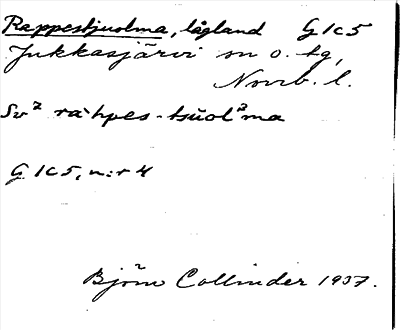 Rappestjuolma, lågland G 1c5
Jukkasjärvi sn o. tg,
Norrb. l.
Sv² ra·hpes-tšuol²ma
G 1c5, n:r 4
Björn Collinder 1937.